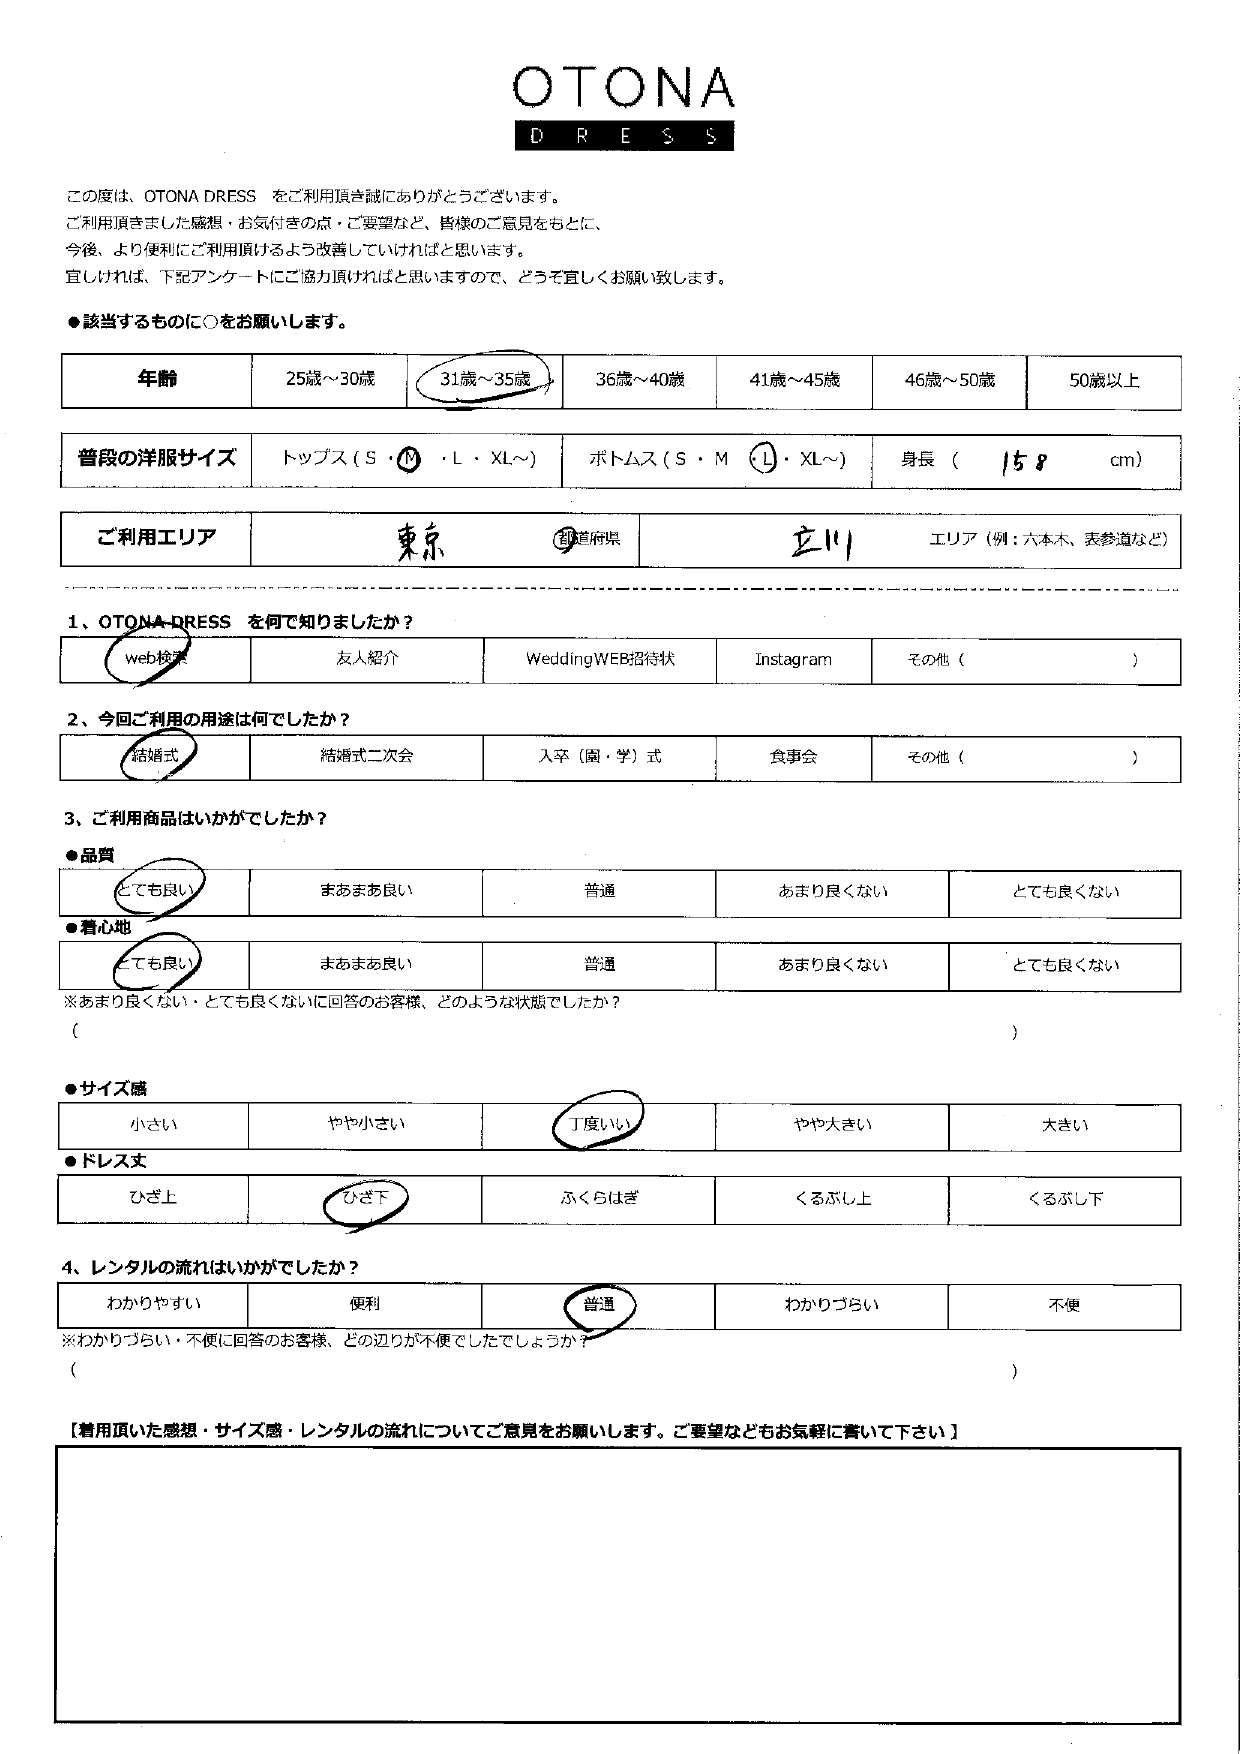 OTONA
DRESS
この度は、OTONA DRESS　をご利用頂き誠にありがとうございます。
ご利用頂きました感想・お気付きの点・ご要望など、皆様のご意見をもとに、
今後、より便利にご利用頂けるよう改善していければと思います。
宜しければ、下記アンケートにご協力頂ければと思いますので、どうぞ宜しくお願い致します。
●該当するものに○をお願いします。
年齢 25歳～30歳 31歳～35歳 36歳～40歳 41歳～45歳 46歳～50歳 50歳以上
普段の洋服サイズ トップス ( S ・ M ・ L ・ XL～) ボトムス ( S ・ M ・ L ・ XL～) 身長 ( 158 cm)
ご利用エリア 東京 都道府県 立川 エリア（例：六本木、表参道など）
1、OTONA DRESS　を何で知りましたか？
web検索 友人紹介 WeddingWEB招待状 Instagram その他（ ）
2、今回ご利用の用途は何でしたか？
結婚式 結婚式二次会 入卒（園・学）式 食事会 その他（ ）
3、ご利用商品はいかがでしたか？
●品質
とても良い まあまあ良い 普通 あまり良くない とても良くない
●着心地
とても良い まあまあ良い 普通 あまり良くない とても良くない
※あまり良くない・とても良くないに回答のお客様、どのような状態でしたか？
（ ）
●サイズ感
小さい やや小さい 丁度いい やや大きい 大きい
●ドレス丈
ひざ上 ひざ下 ふくらはぎ くるぶし上 くるぶし下
4、レンタルの流れはいかがでしたか？
わかりやすい 便利 普通 わかりづらい 不便
※わかりづらい・不便に回答のお客様、どの辺りが不便でしたでしょうか？
（ ）
【着用頂いた感想・サイズ感・レンタルの流れについてご意見をお願いします。ご要望などもお気軽に書いて下さい 】